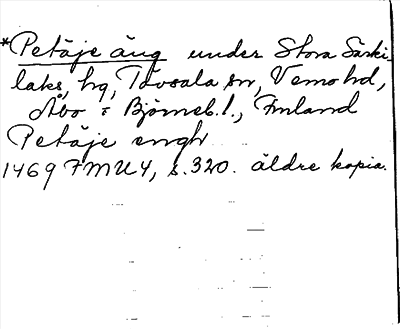 *Petäje äng under Stora Särki-
laks, hg, Tövsala sn, Vemo hd,
Åbo o Björneb. l., Finland
Petäje engh
1469 FMU 4, s. 320. äldre kopia.